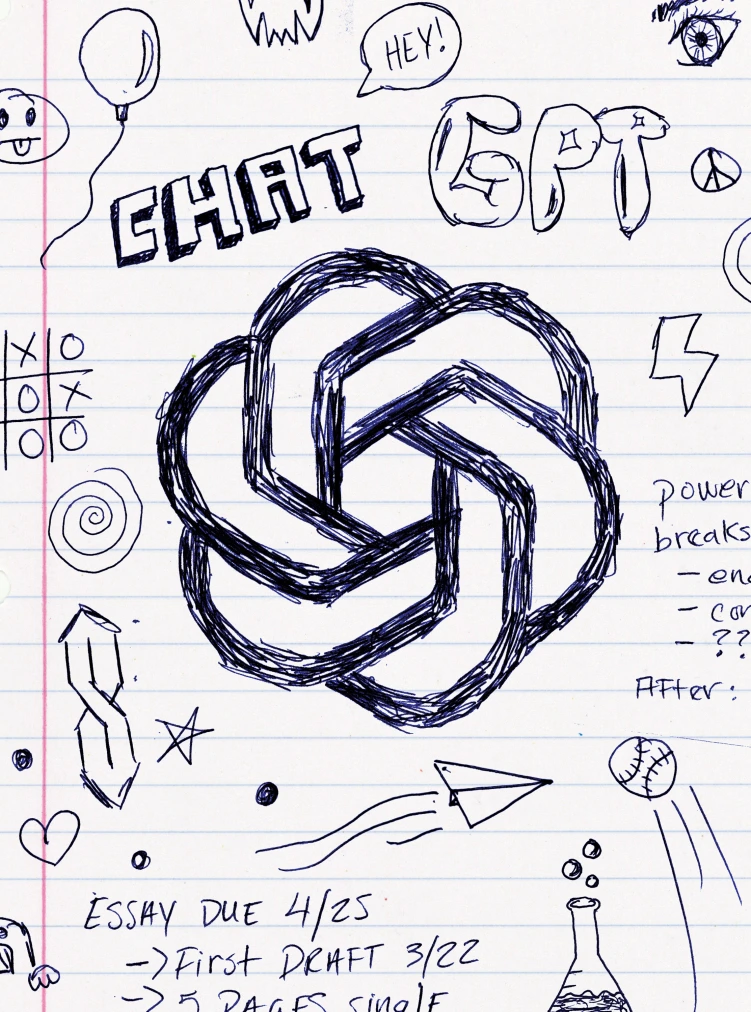 HEY!
CHAT GPT
X O
O X
O O
power
breaks
-
-
- ??
After:
ESSAY DUE 4/25
-> First DRAFT 3/22
-> 5 PAGES single